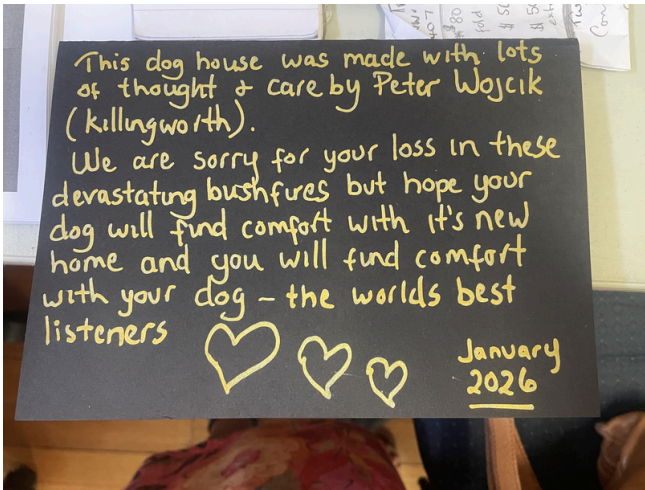 This dog house was made with lots
of thought & care by Peter Wojcik
(Killingworth).
We are sorry for your loss in these
devastating bushfires but hope your
dog will find comfort with it's new
home and you will find comfort
with your dog – the worlds best
listeners
January
2026